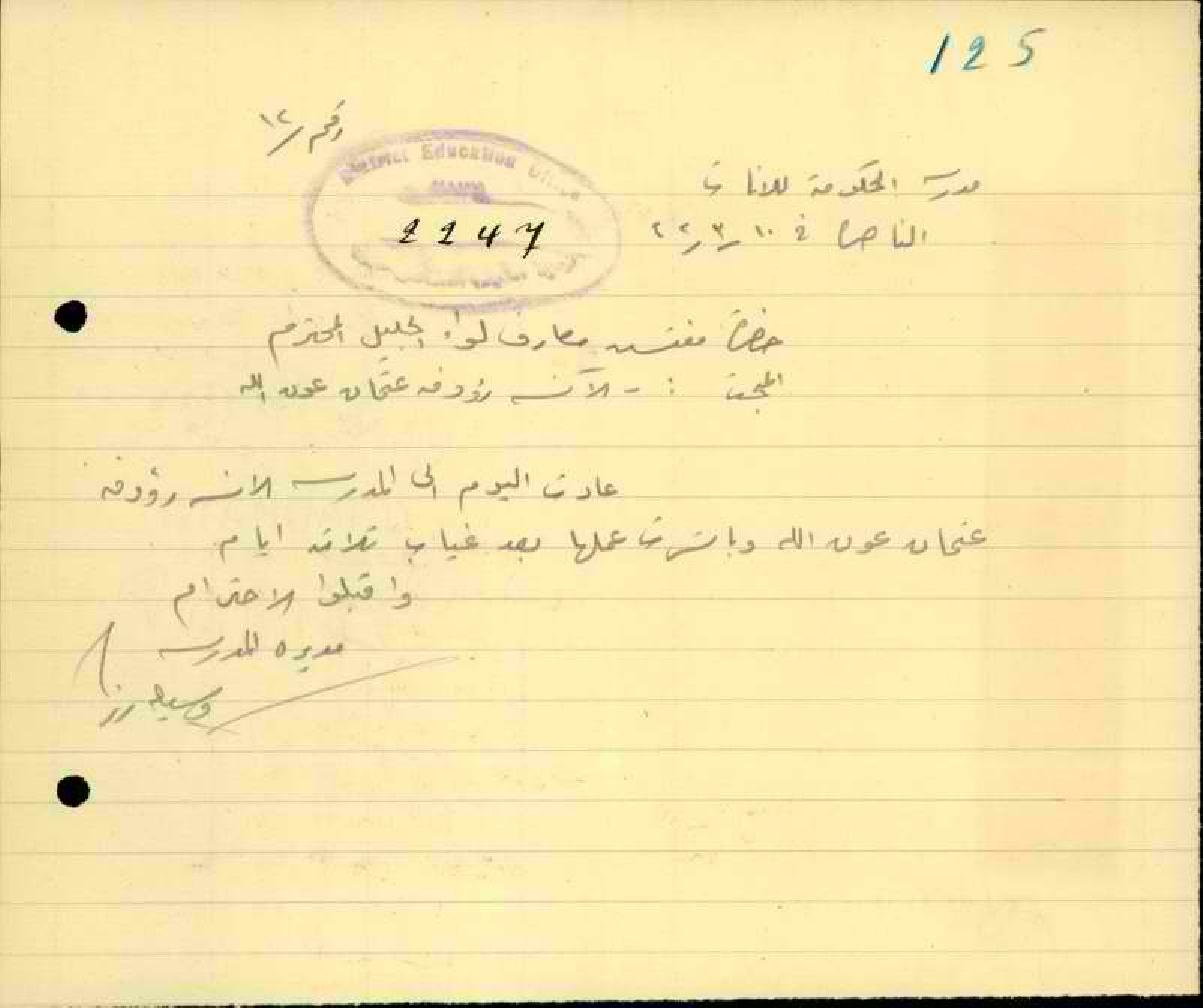 125
رقم ١٢
District Education Office
2247
مدرسة الحكومة للاناث
الناصرة في ١٠
حضرة مفتش معارف لواء الجليل المحترم
المبحث : - الآنسه رؤوفه عثمان عون الله
عادت اليوم الى المدرسه الانسه رؤوفه
عثمان عون الله وباشرت عملها بعد غياب ثلاثة ايام
واقبلوا الاحترام
مديره المدرسه